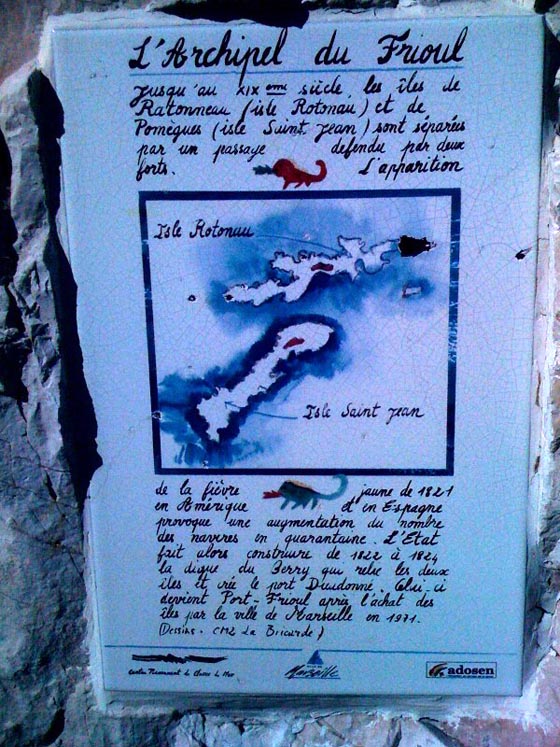 L'Archipel du Frioul
Jusqu'au XIXème siècle, les îles de
Ratonneau (isle Rotonau) et de
Pomègues (isle Saint Jean) sont séparées
par un passage défendu par deux
forts. L'apparition
Isle Rotonau
Isle Saint Jean
de la fièvre jaune de 1821
en Amérique et en Espagne
provoque une augmentation du nombre
des navires en quarantaine. L'Etat
fait alors construire de 1822 à 1824
la digue du Berry qui relie les deux
îles et crée le port Dieudonné. Celui-ci
devient Port-Frioul après l'achat des
îles par la ville de Marseille en 1971.
(Dessins. CM2 La Bricarde)
Centre Permanent de Classes de Mer
Marseille
adosen